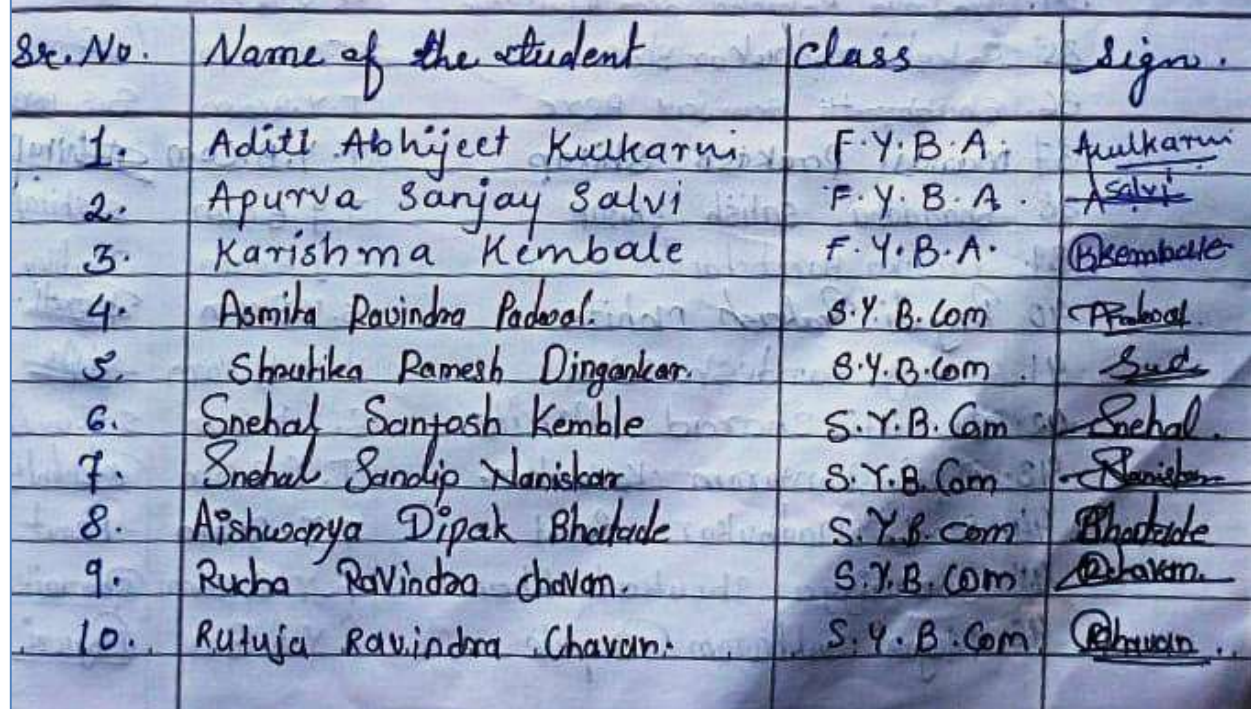 Sr. No. Name of the student Class Sign.
1. Aditi Abhijeet Kulkarni F.Y.B.A. Akulkarni
2. Apurva Sanjay Salvi F.Y.B.A. Asalvi
3. Karishma Kembale F.Y.B.A. Kembale
4. Asmita Ravindra Padwal. S.Y.B.Com Padwal
5. Shrutika Ramesh Dingankar. S.Y.B.Com
6. Snehal Santosh Kemble S.Y.B.Com Snehal.
7. Snehal Sandip Naniskar S.Y.B.Com Naniskar
8. Aishwarya Dipak Bhatade S.Y.B.Com Bhatade
9. Rucha Ravindra Chavan. S.Y.B.Com Rchavan.
10. Rutuja Ravindra Chavan. S.Y.B.Com Rchavan.